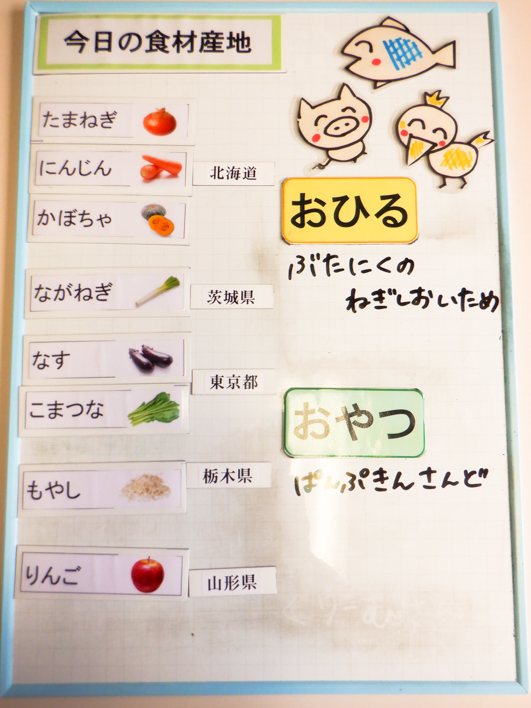 今日の食材産地
たまねぎ
にんじん
北海道
かぼちゃ
ながねぎ
茨城県
なす
東京都
こまつな
もやし
栃木県
りんご
山形県
おひる
ぶたにくの
ねぎしおいため
おやつ
ぱんぷきんさんど